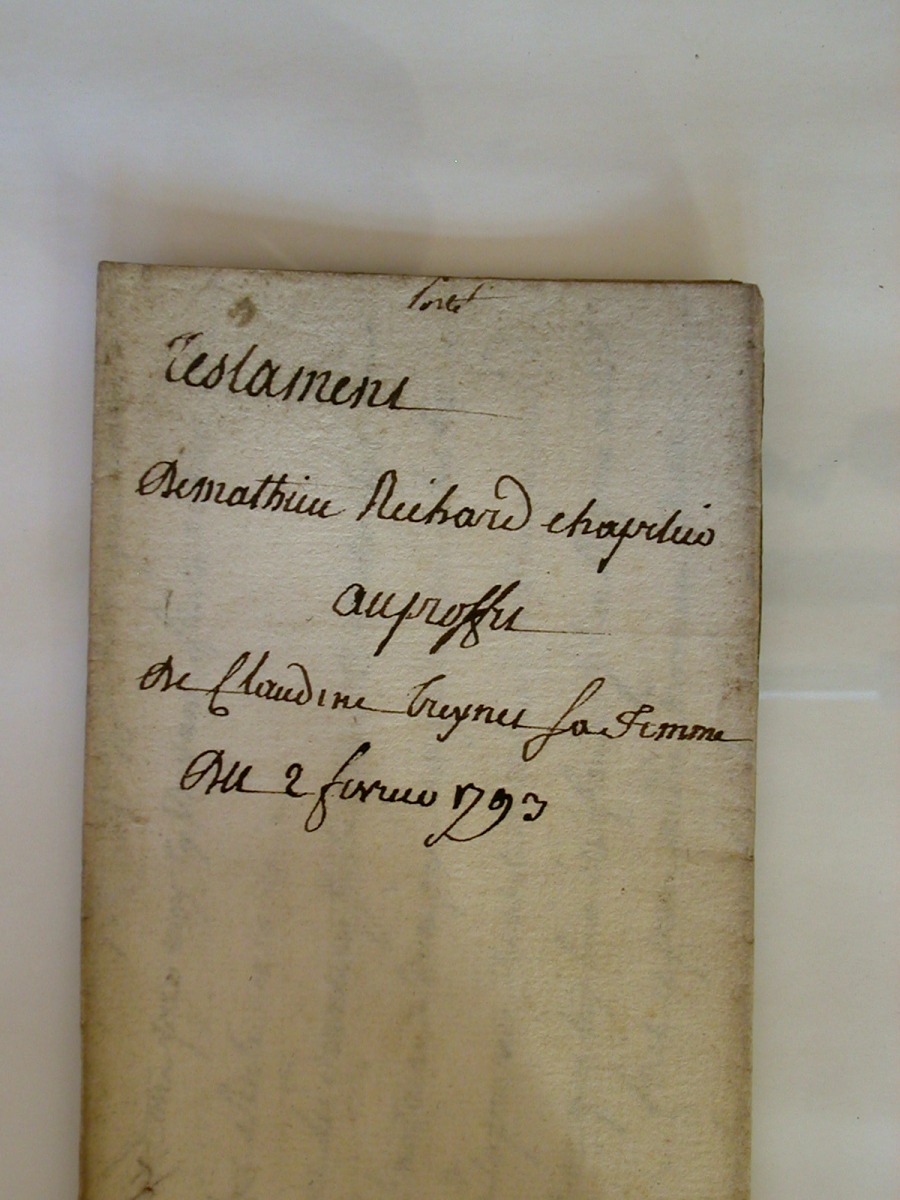 Porté
Testament
De mathieu Richard chapelier
au proffit
De Claudine treynet sa Femme
Du 2 fevrier 1793